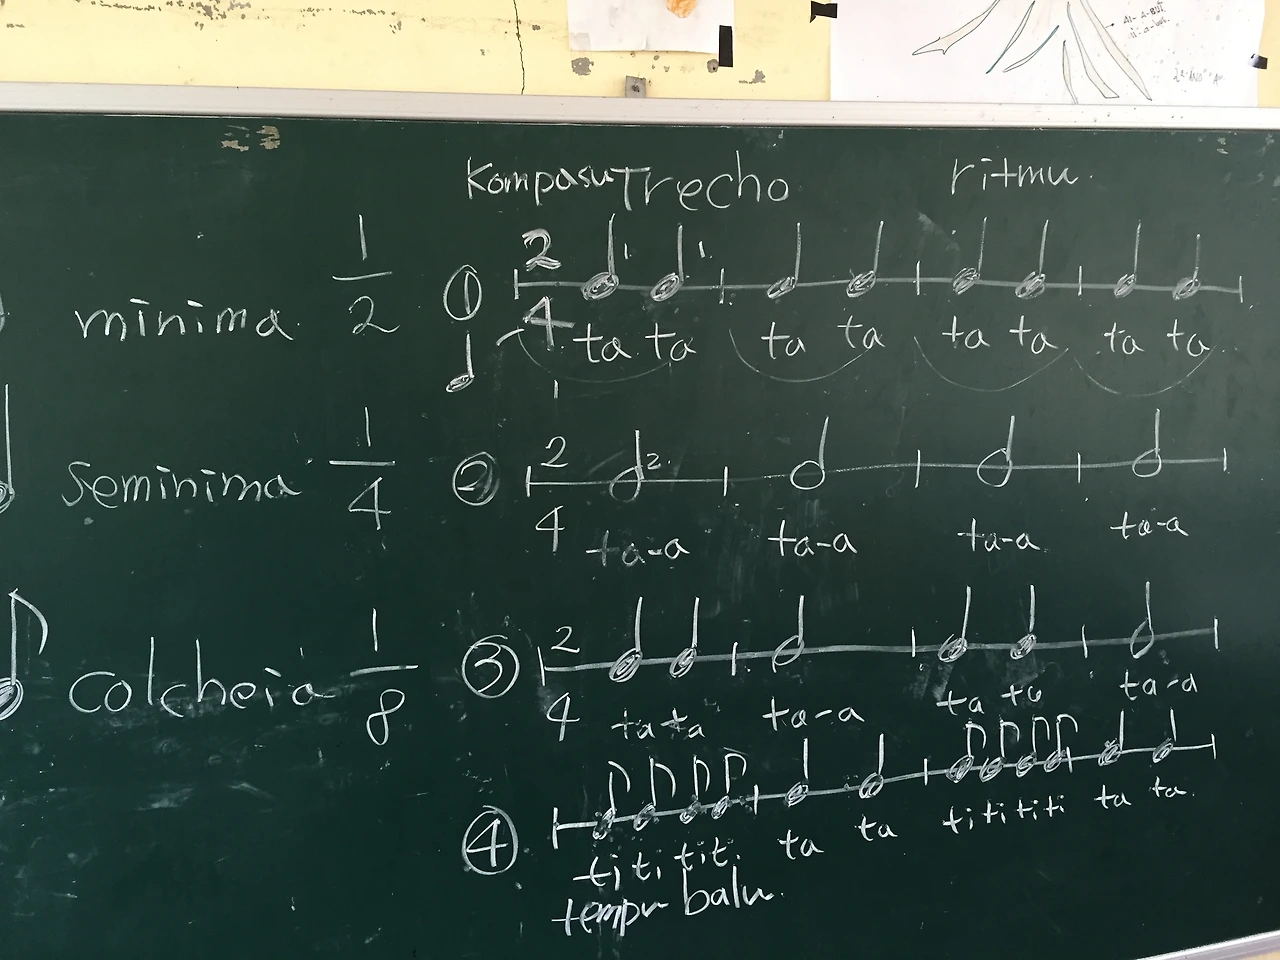 Kompasu Trecho ritmu
minima 1/2
① 2/4 1 1
ta ta ta ta ta ta ta ta
seminima 1/4
② 2/4 2
ta-a ta-a ta-a ta-a
colcheia 1/8
③ 2/4
ta ta ta-a ta ta ta-a
④
ti ti ti ti ta ta ti ti ti ti ta ta
tempu balu